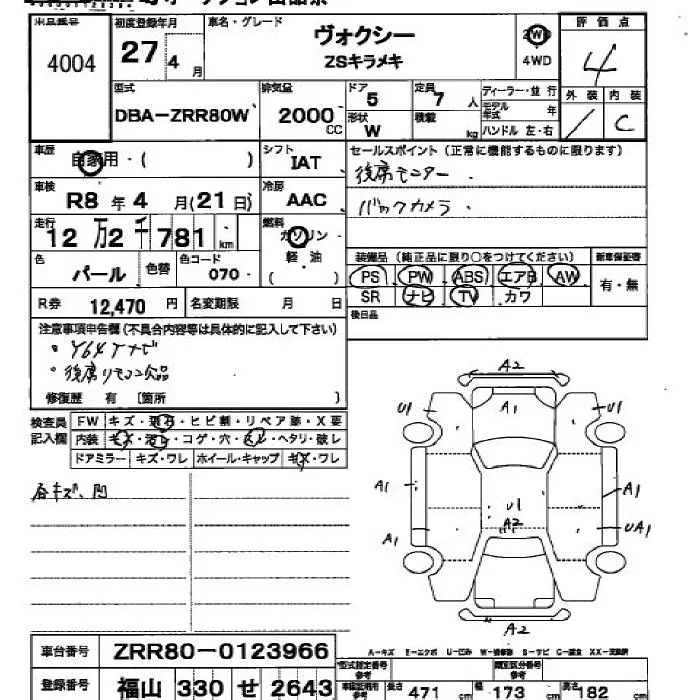 初度登録年月 車名・グレード 評価点
4004 27年 4月 ヴォクシー ZSキラメキ 2WD 4WD 4
型式 DBA-ZRR80W 排気量 2000CC ドア 5 定員 7人 ディーラー・並行 外装 内装
形状 W 積載 kg モデル年式 年 ハンドル 左・右 C
車歴 自家用・( ) シフト IAT セールスポイント(正常に機能するものに限ります)
後席モニター
車検 R8年4月(21日) 冷房 AAC バックカメラ
走行 12万2千781km 燃料 ガソリン 軽油 ( )
装備品(純正品に限り○をつけてください) 新車保証書
色 パール 色替 色コード 070 PS PW ABS エアB AW 有・無
SR ナビ TV カワ
R券 12,470円 名変期限 月 日 後日品
注意事項申告欄(不具合内容等は具体的に記入して下さい)
・後席リモコン欠品
修復歴 有 〔箇所 〕
検査員記入欄 FW キズ・飛石・ヒビ割・リペア跡・X要
内装 キズ・汚レ・コゲ・穴・スレ・ヘタリ・破レ
ドアミラー キズ・ワレ ホイール・キャップ キズ・ワレ
各キズ、凹
A2
U1 A1 U1
A1 A1
U1
A2
A1 UA1
A2
A-キズ E-エクボ U-凹ミ W-補修跡 S-サビ C-腐食 XX-交換済
車台番号 ZRR80-0123966
型式指定番号 参考 類別区分番号 参考
登録番号 福山 330 せ 2643
長さ 471cm 幅 173cm 高さ 182cm